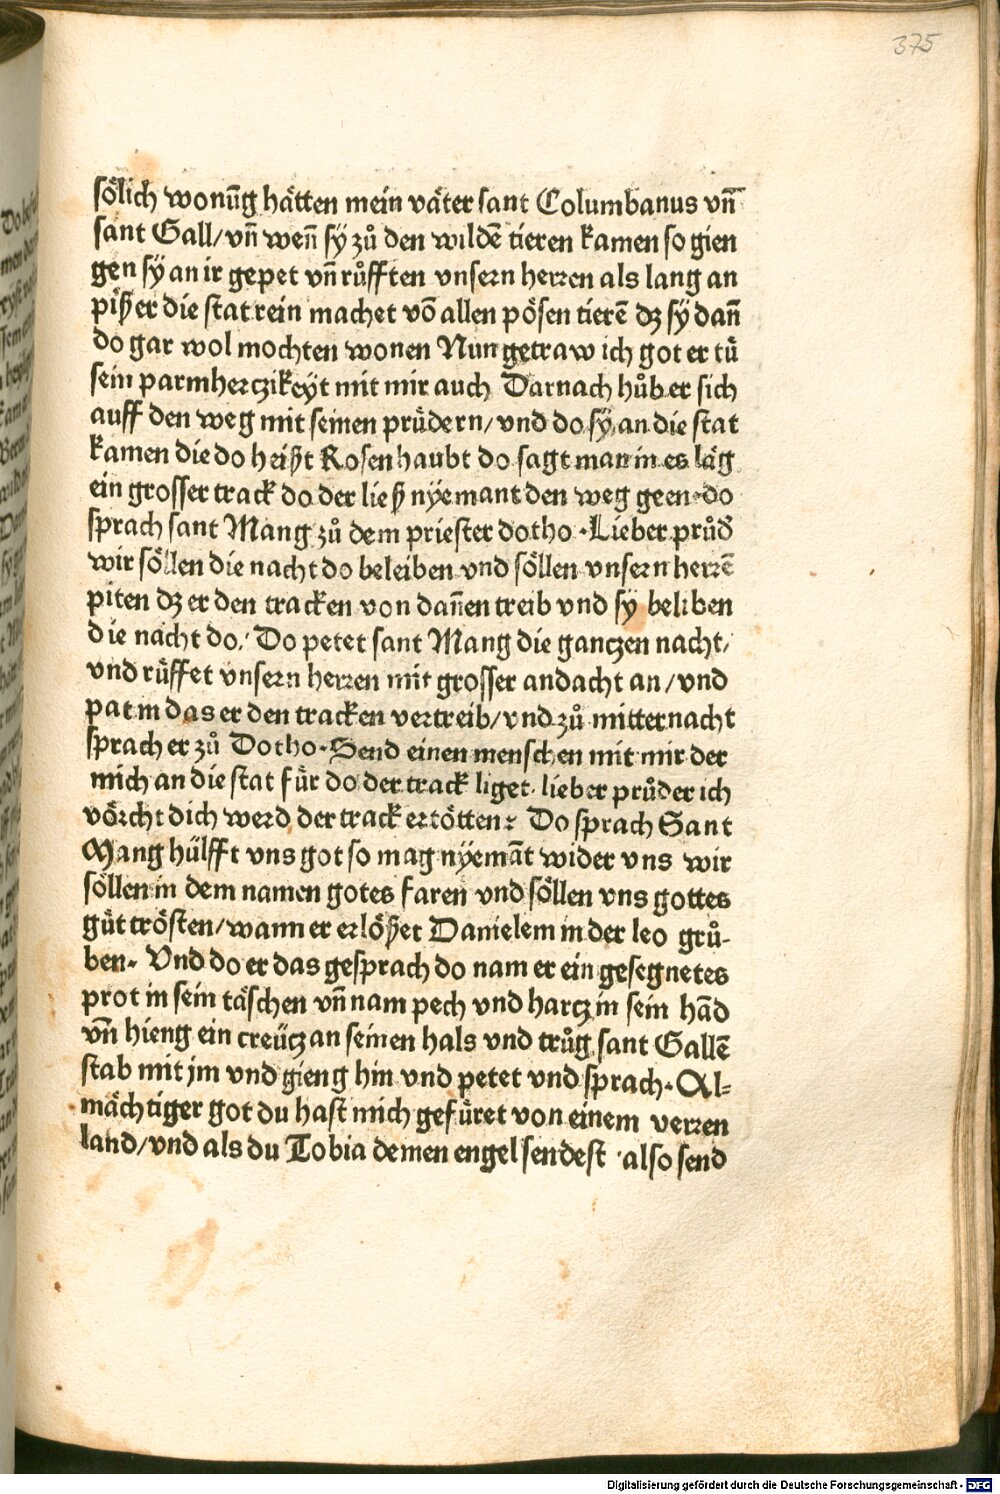 375
sölich wonūg hätten mein väter sant Columbanus vñ
sant Gall/vñ weñ sÿ zů den wildē tieren kamen so gien
gen sÿ an ir gepet vñ růfften vnsern herren als lang an
piß er die stat rein machet vō allen pösen tierē dz sÿ dañ
do gar wol mochten wonen Nun getraw ich got er tü
sein parmherczikeÿt mit mir auch Darnach hůb er sich
auff den weg mit seinen prüdern/vnd do sÿ an die stat
kamen die do heißt Rosenhaubt do sagt man in es läg
ein grosser track do der ließ nÿemant den weg geen·do
sprach sant Mang zů dem priester dotho·Lieber průd
wir söllen die nacht do beleiben vnd söllen vnsern herrē
piten dz er den tracken von dañen treib vnd sÿ beliben
die nacht do. Do petet sant Mang die ganczen nacht/
vnd rüffet vnsern herren mit grosser andacht an/vnd
pat in das er den tracken vertreib/vnd zů mitternacht
sprach er zů Dotho·Send einen menschen mit mir der
mich an die stat für do der track liget. lieber průder ich
vörcht dich werd der track ertötten: Do sprach Sant
Mang hülfft vns got so mag nÿemāt wider vns wir
söllen in dem namen gotes faren vnd söllen vns gottes
güt trösten/wann er erlößet Danielem in der leo grů-
ben. Vnd do er das gesprach do nam er ein gesegnetes
prot in sein täschen vñ nam pech vnd harcz in sein hād
vñ hieng ein creücz an seinen hals vnd trůg sant Gallē
stab mit jm vnd gieng hin vnd petet vnd sprach·Al-
mächtiger got du hast mich gefüret von einem verren
land/vnd als du Tobia deinen engel sendest ·also send
Digitalisierung gefördert durch die Deutsche Forschungsgemeinschaft - DFG